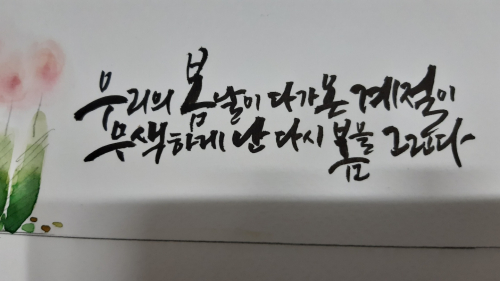 우리의 봄날이 다가온 계절이
무색하게 난 다시 봄을 그린다